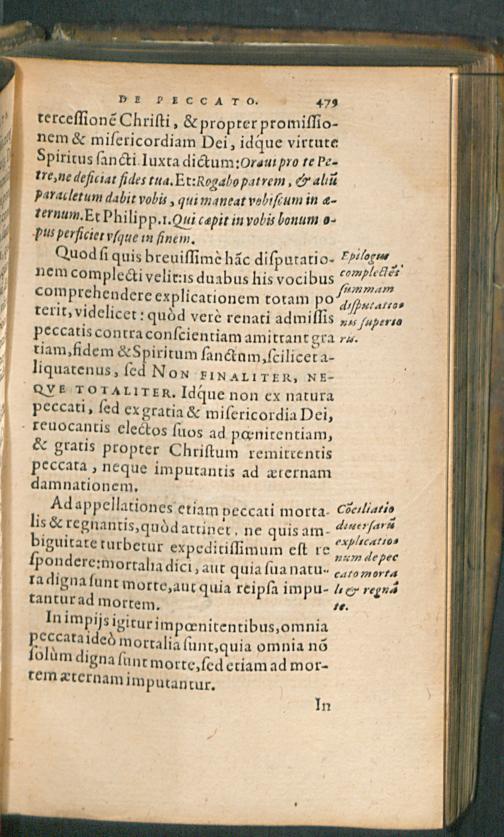 DE PECCATO. 479
terceſſionẽ Chriſti, & propter promiſſio-
nem & miſericordiam Dei, idq́ue virtute
Spiritus ſancti. Iuxta dictum: Oraui pro te Pe-
tre, ne deficiat fides tua. Et: Rogabo patrem, & aliũ
paracletum dabit vobis, qui maneat vobiſcum in æ-
ternum. Et Philipp. 1. Qui cœpit in vobis bonum o-
pus perficiet vſque in finem.
Quod ſi quis breuiſſimè hãc diſputatio-
nem complecti velit: is duabus his vocibus
comprehendere explicationem totam po
terit, videlicet: quòd verè renati admiſſis
peccatis contra conſcientiam amittant gra
tiam, fidem & Spiritum ſanctum, ſcilicet a-
liquatenus, ſed NON FINALITER, NE-
QVE TOTALITER. Idq́ue non ex natura
peccati, ſed ex gratia & miſericordia Dei,
reuocantis electos ſuos ad pœnitentiam,
& gratis propter Chriſtum remittentis
peccata, neque imputantis ad æternam
damnationem.
Epilogus
complectẽs
ſummam
diſputatio-
nis ſuperio
ris.
Ad appellationes etiam peccati morta-
lis & regnantis, quòd attinet, ne quis am-
biguitate turbetur expeditiſſimum eſt re
ſpondere: mortalia dici, aut quia ſua natu-
ra digna ſunt morte, aut quia reipſa impu-
tantur ad mortem.
Cõciliatio
diuerſarũ
explicatio-
num de pec
cato morta
li & regnã
te.
In impijs igitur impœnitentibus, omnia
peccata ideò mortalia ſunt, quia omnia nõ
ſolùm digna ſunt morte, ſed etiam ad mor-
tem æternam imputantur.
In